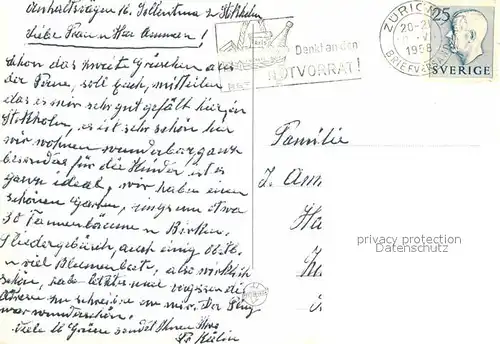 16. Sollentuna b. Stokholm
Liebe Frau u. Herr Ammann!
Schon das zweite Grüschen aus
der Ferne, soll Euch mitteilen
das es mir sehr gut gefält hier in
Stokholm, es ist sehr schön hier
wir wohnen wunderbar, ganz
besonders für die Kinder ist es
ganz ideal, wir haben einen
schönen Garten, ringsum etwa
30 Tannenbäume u. Birken
Fliedergebüsch, auch einig Obstb.
u viel Blumenbeete, also wirklich
schön, habe letztes mal vergessen die
Adresse zu schreiben von mir. Der Flug
war wunderschön.
Viele lb Grüsse sendet Ihnen Ihre
Dankt an den
NOTVORRAT!
ZÜRICH
20-2
1958
BRIEFVERS
25
SVERIGE
Familie
J. Am
Ha
privacy protection
Datenschutz